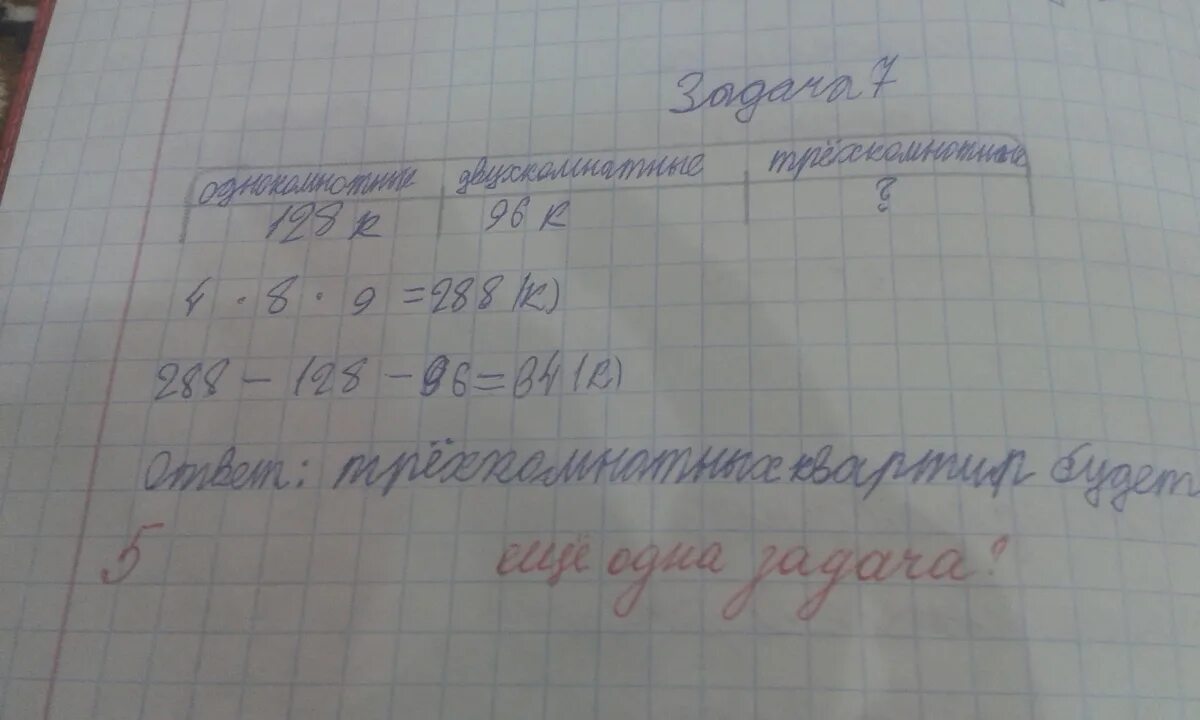 Задача 7
однокомнотные двухкомнатные трёхкомнотные
128 к 96 к ?
4 · 8 · 9 = 288 (к)
288 - 128 - 96 = 34 (к)
ответ: трёхкомнотных квартир будет
5 ещё одна задача?